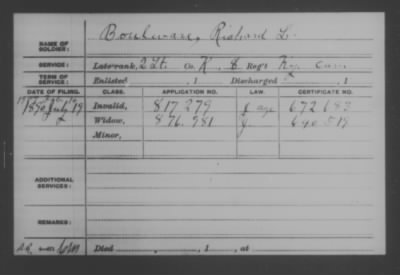 NAME OF SOLDIER: Boulware, Richard L.
SERVICE: Late rank, 2 Lt. Co. K, Reg't Ky. Cav.
TERM OF SERVICE: Enlisted , 1 Discharged , 1
DATE OF FILING. CLASS. APPLICATION NO. LAW. CERTIFICATE NO.
1890 July 19 Invalid, 817 279 672 682
Widow, 876.981 640 519
Minor,
ADDITIONAL SERVICES:
REMARKS:
Died , 1 , at